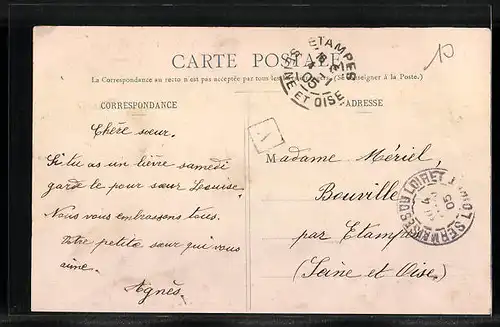 CARTE POSTALE
La Correspondance au recto n'est pas acceptée par tous les (Se renseigner à la Poste.)
CORRESPONDANCE
ADRESSE
ETAMPES
SEINE ET OISE
05
10
A
Chère sœur.
Si tu as un lièvre samedi
garde le pour sœur Louise.
Nous vous embrassons tous.
Votre petite sœur qui vous
aime.
Agnès.
Madame Mériel,
Bouville
par Etampes
(Seine et Oise.)
LOIRET
05